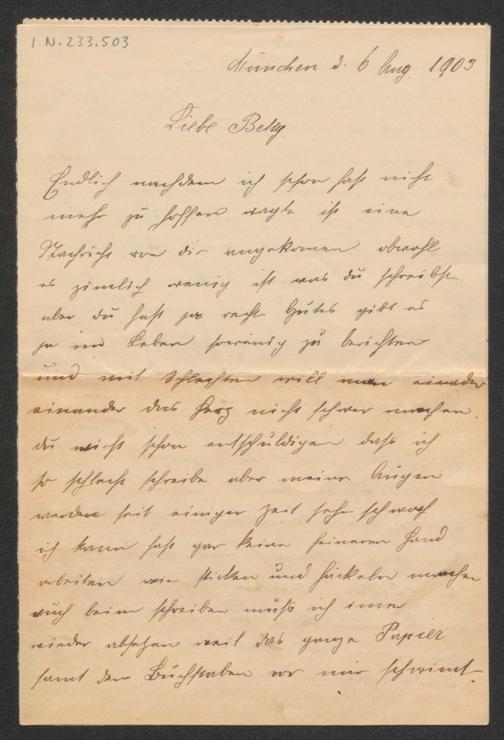 I.N.233.503
München d. 6 Aug. 1903
Liebe Betty.
Endlich nachdem ich schon fast nicht
mehr zu hoffen wagte ist eine
Nachricht von dir angekomen obwohl
es zimlich wenig ist was du schreibst
aber du hast ja recht Gutes gibt es
ja im Leben sowenig zu berichten
und mit Schlechten will man einander
einander das Herz nicht schwer machen.
du wirst schon entschuldigen daß ich
so schlecht schreibe aber meine Augen
werden seit einiger Zeit sehr schwach
ich kann fast gar keine feineren Hand
arbeiten wie sticken und häckeln machen
auch beim schreiben muß ich imer
wieder absetzen weil das ganze Papier
samt den Buchstaben vor mir schwimt.